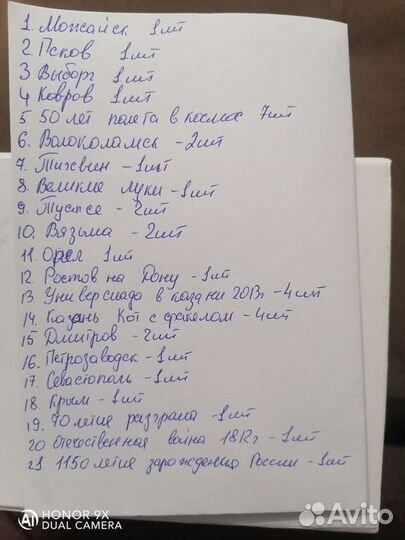 1. Можайск 1шт
2. Псков 1шт
3 Выборг 1шт
4 Ковров 1шт
5 50 лет полета в космос 7шт
6. Волоколамск - 2шт
7. Тихвин - 1шт
8. Великие луки - 1шт
9. Туапсе - 2шт
10. Вязьма - 2шт
11. Орел 1шт
12. Ростов на Дону - 1шт
13. Универсиада в казани 2013г - 4шт
14. Казань Кот с факелом - 4шт
15 Дмитров - 2шт
16. Петрозаводск - 1шт
17. Севастополь - 1шт
18. Крым - 1шт
19. 70 летие разграма - 1шт
20 Отечественная война 1812г - 1шт
21 1150 летие зарождения России - 1шт
HONOR 9X
DUAL CAMERA
Avito